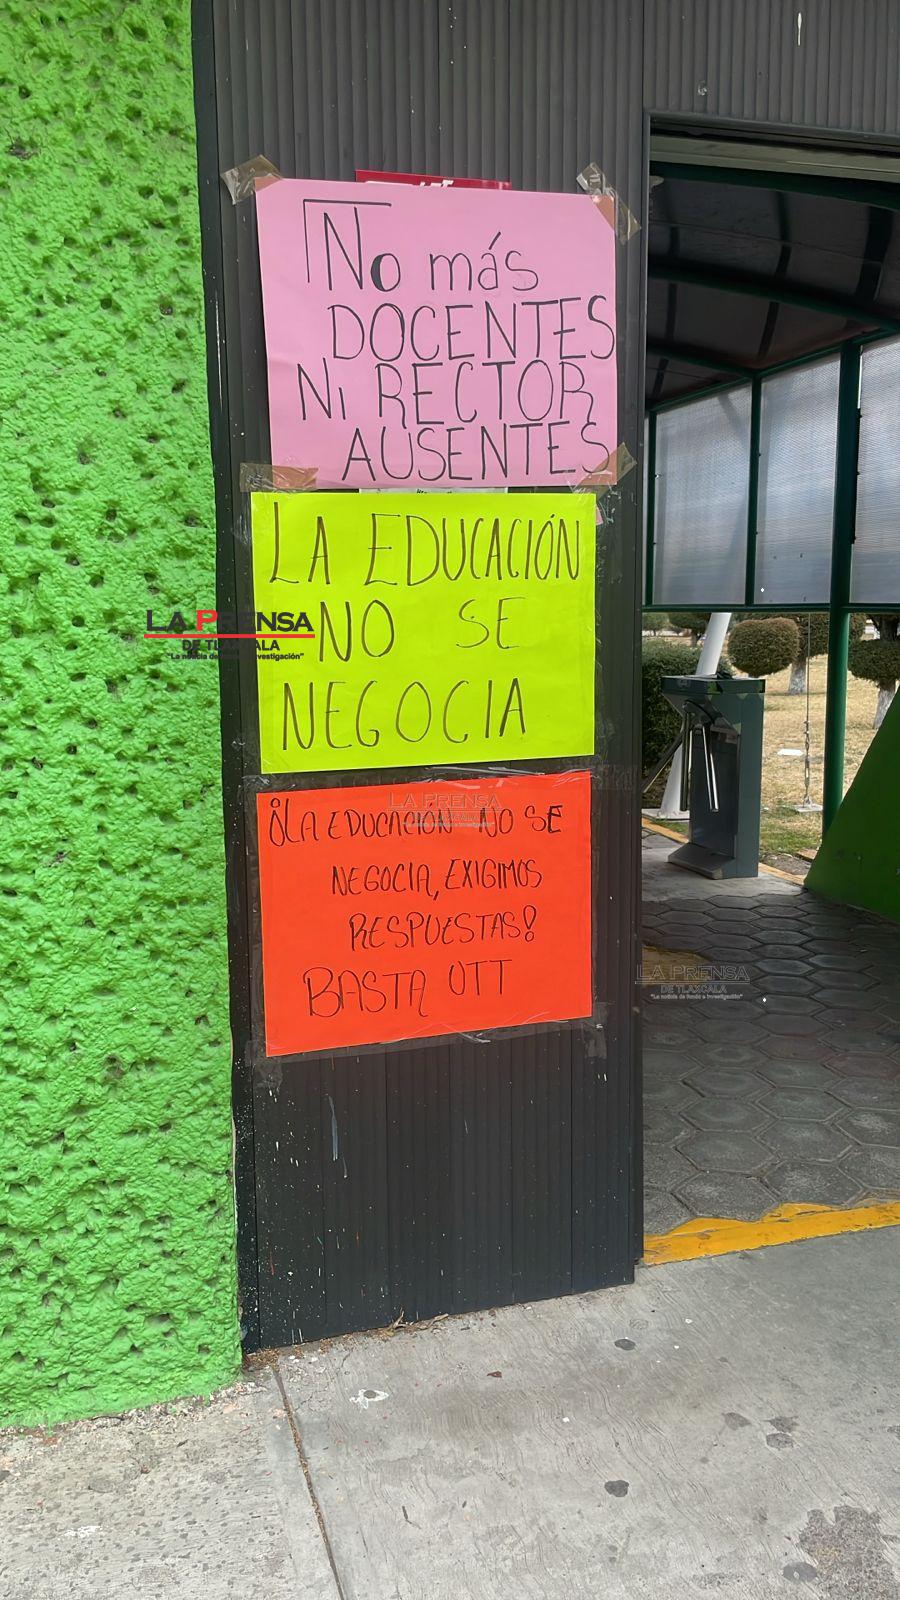 No más
DOCENTES
Ni RECTOR
AUSENTES
LA EDUCACIÓN
NO SE
NEGOCIA
LA PRENSA
DE TLAXCALA
¡LA EDUCACIÓN NO SE
NEGOCIA, EXIGIMOS
RESPUESTAS!
BASTA UTT
LA PRENSA
DE TLAXCALA
LA PRENSA
DE TLAXCALA
"La noticia de fondo e investigación"